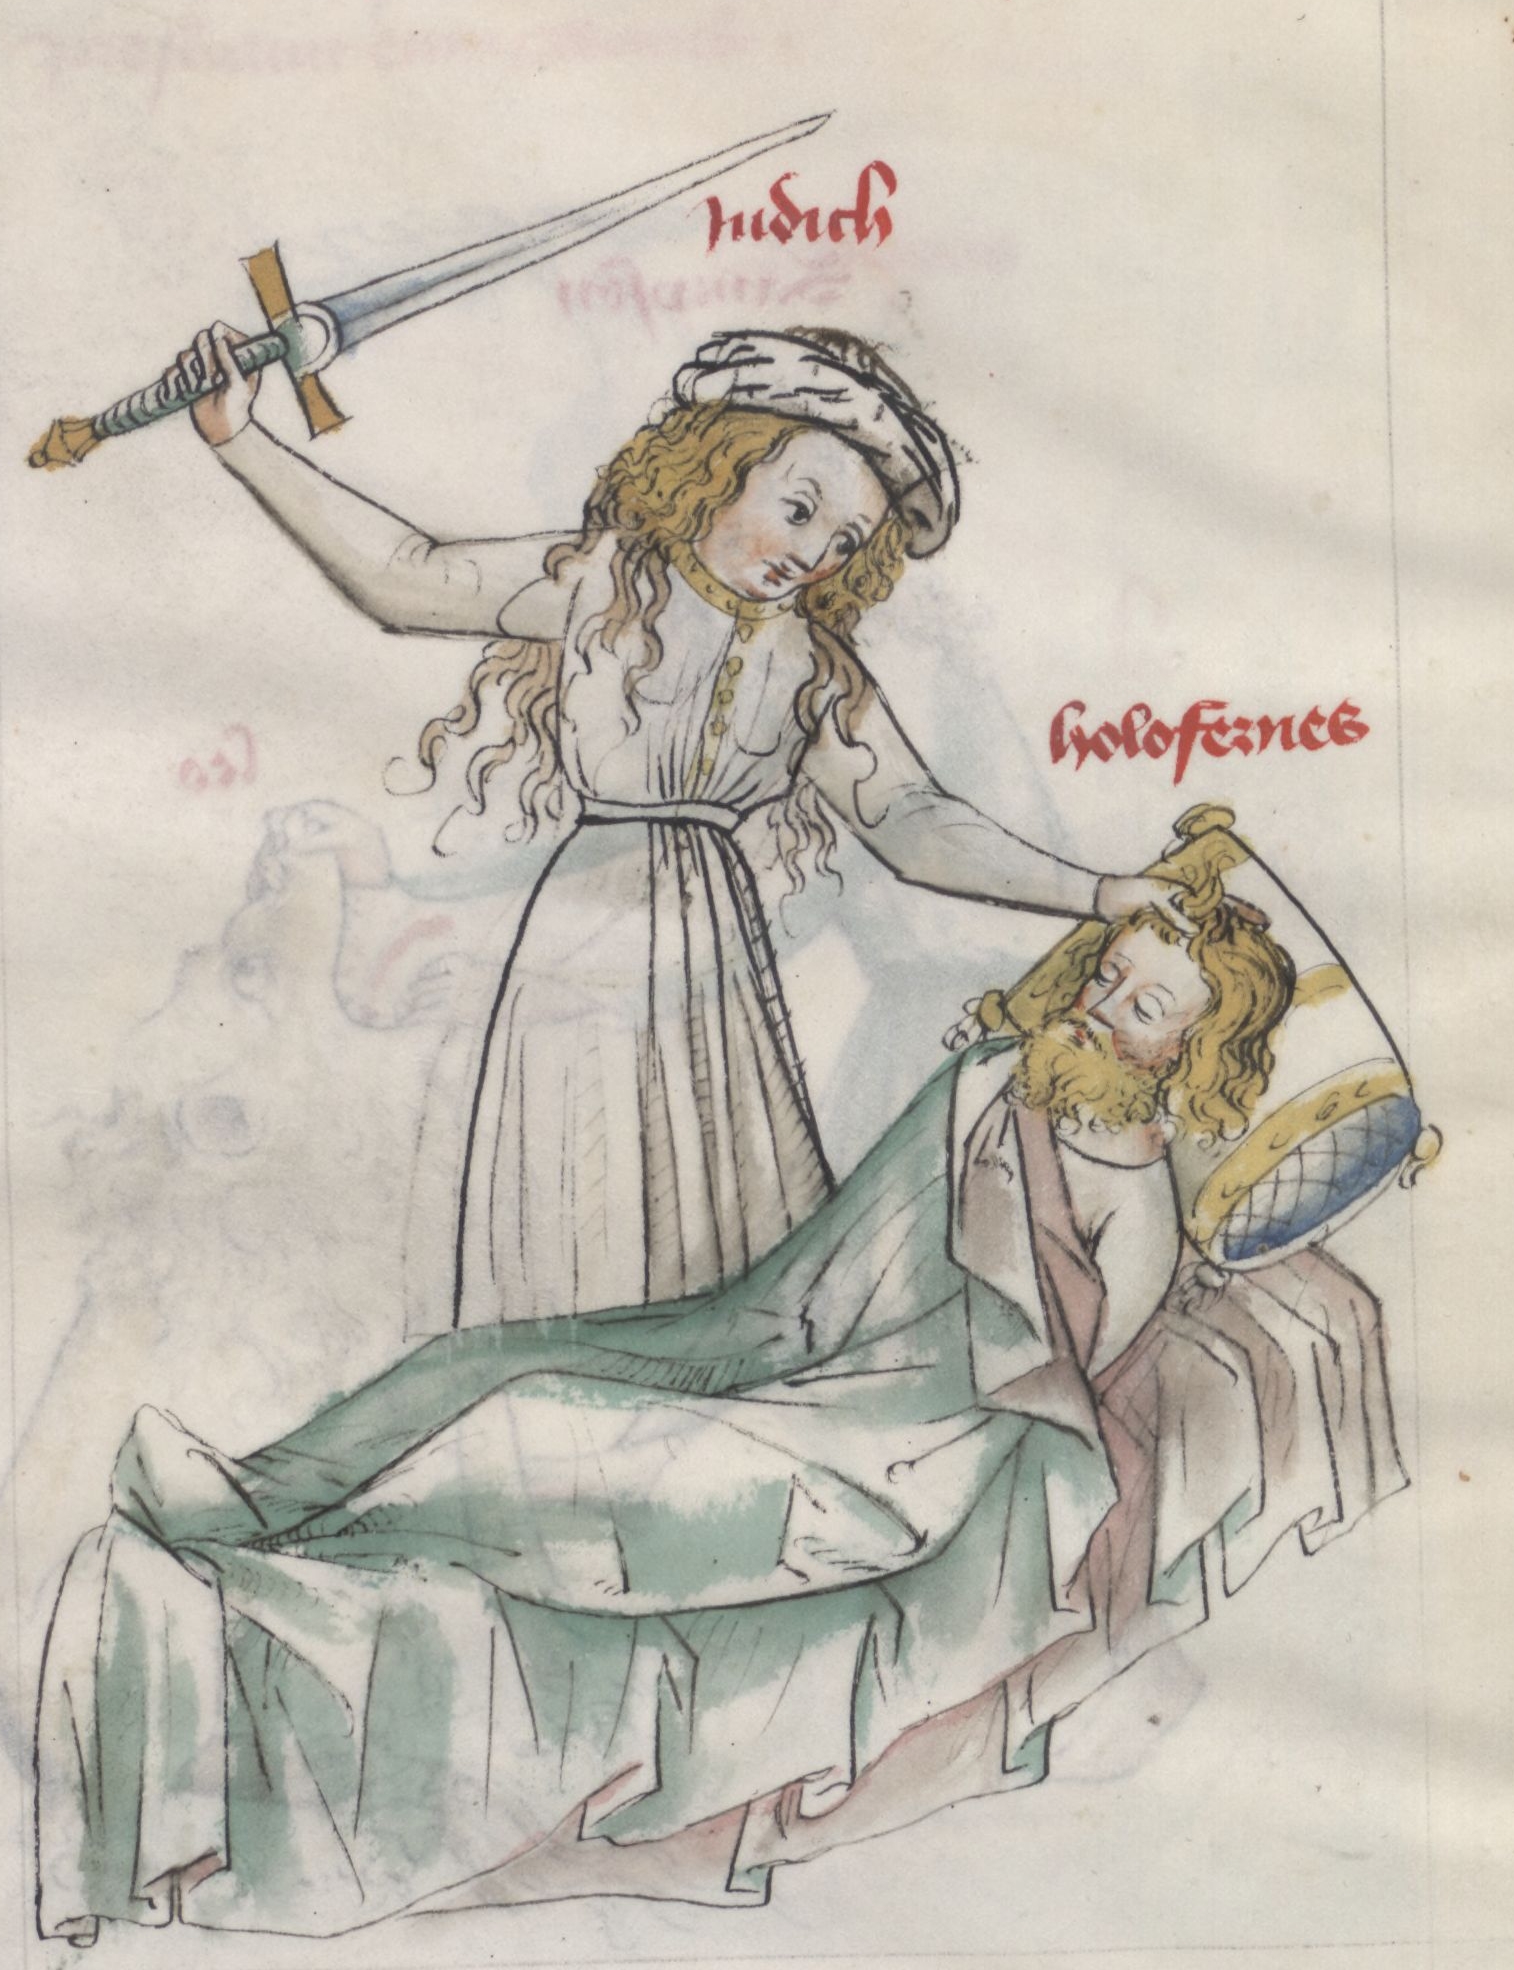 iudith
holofernes